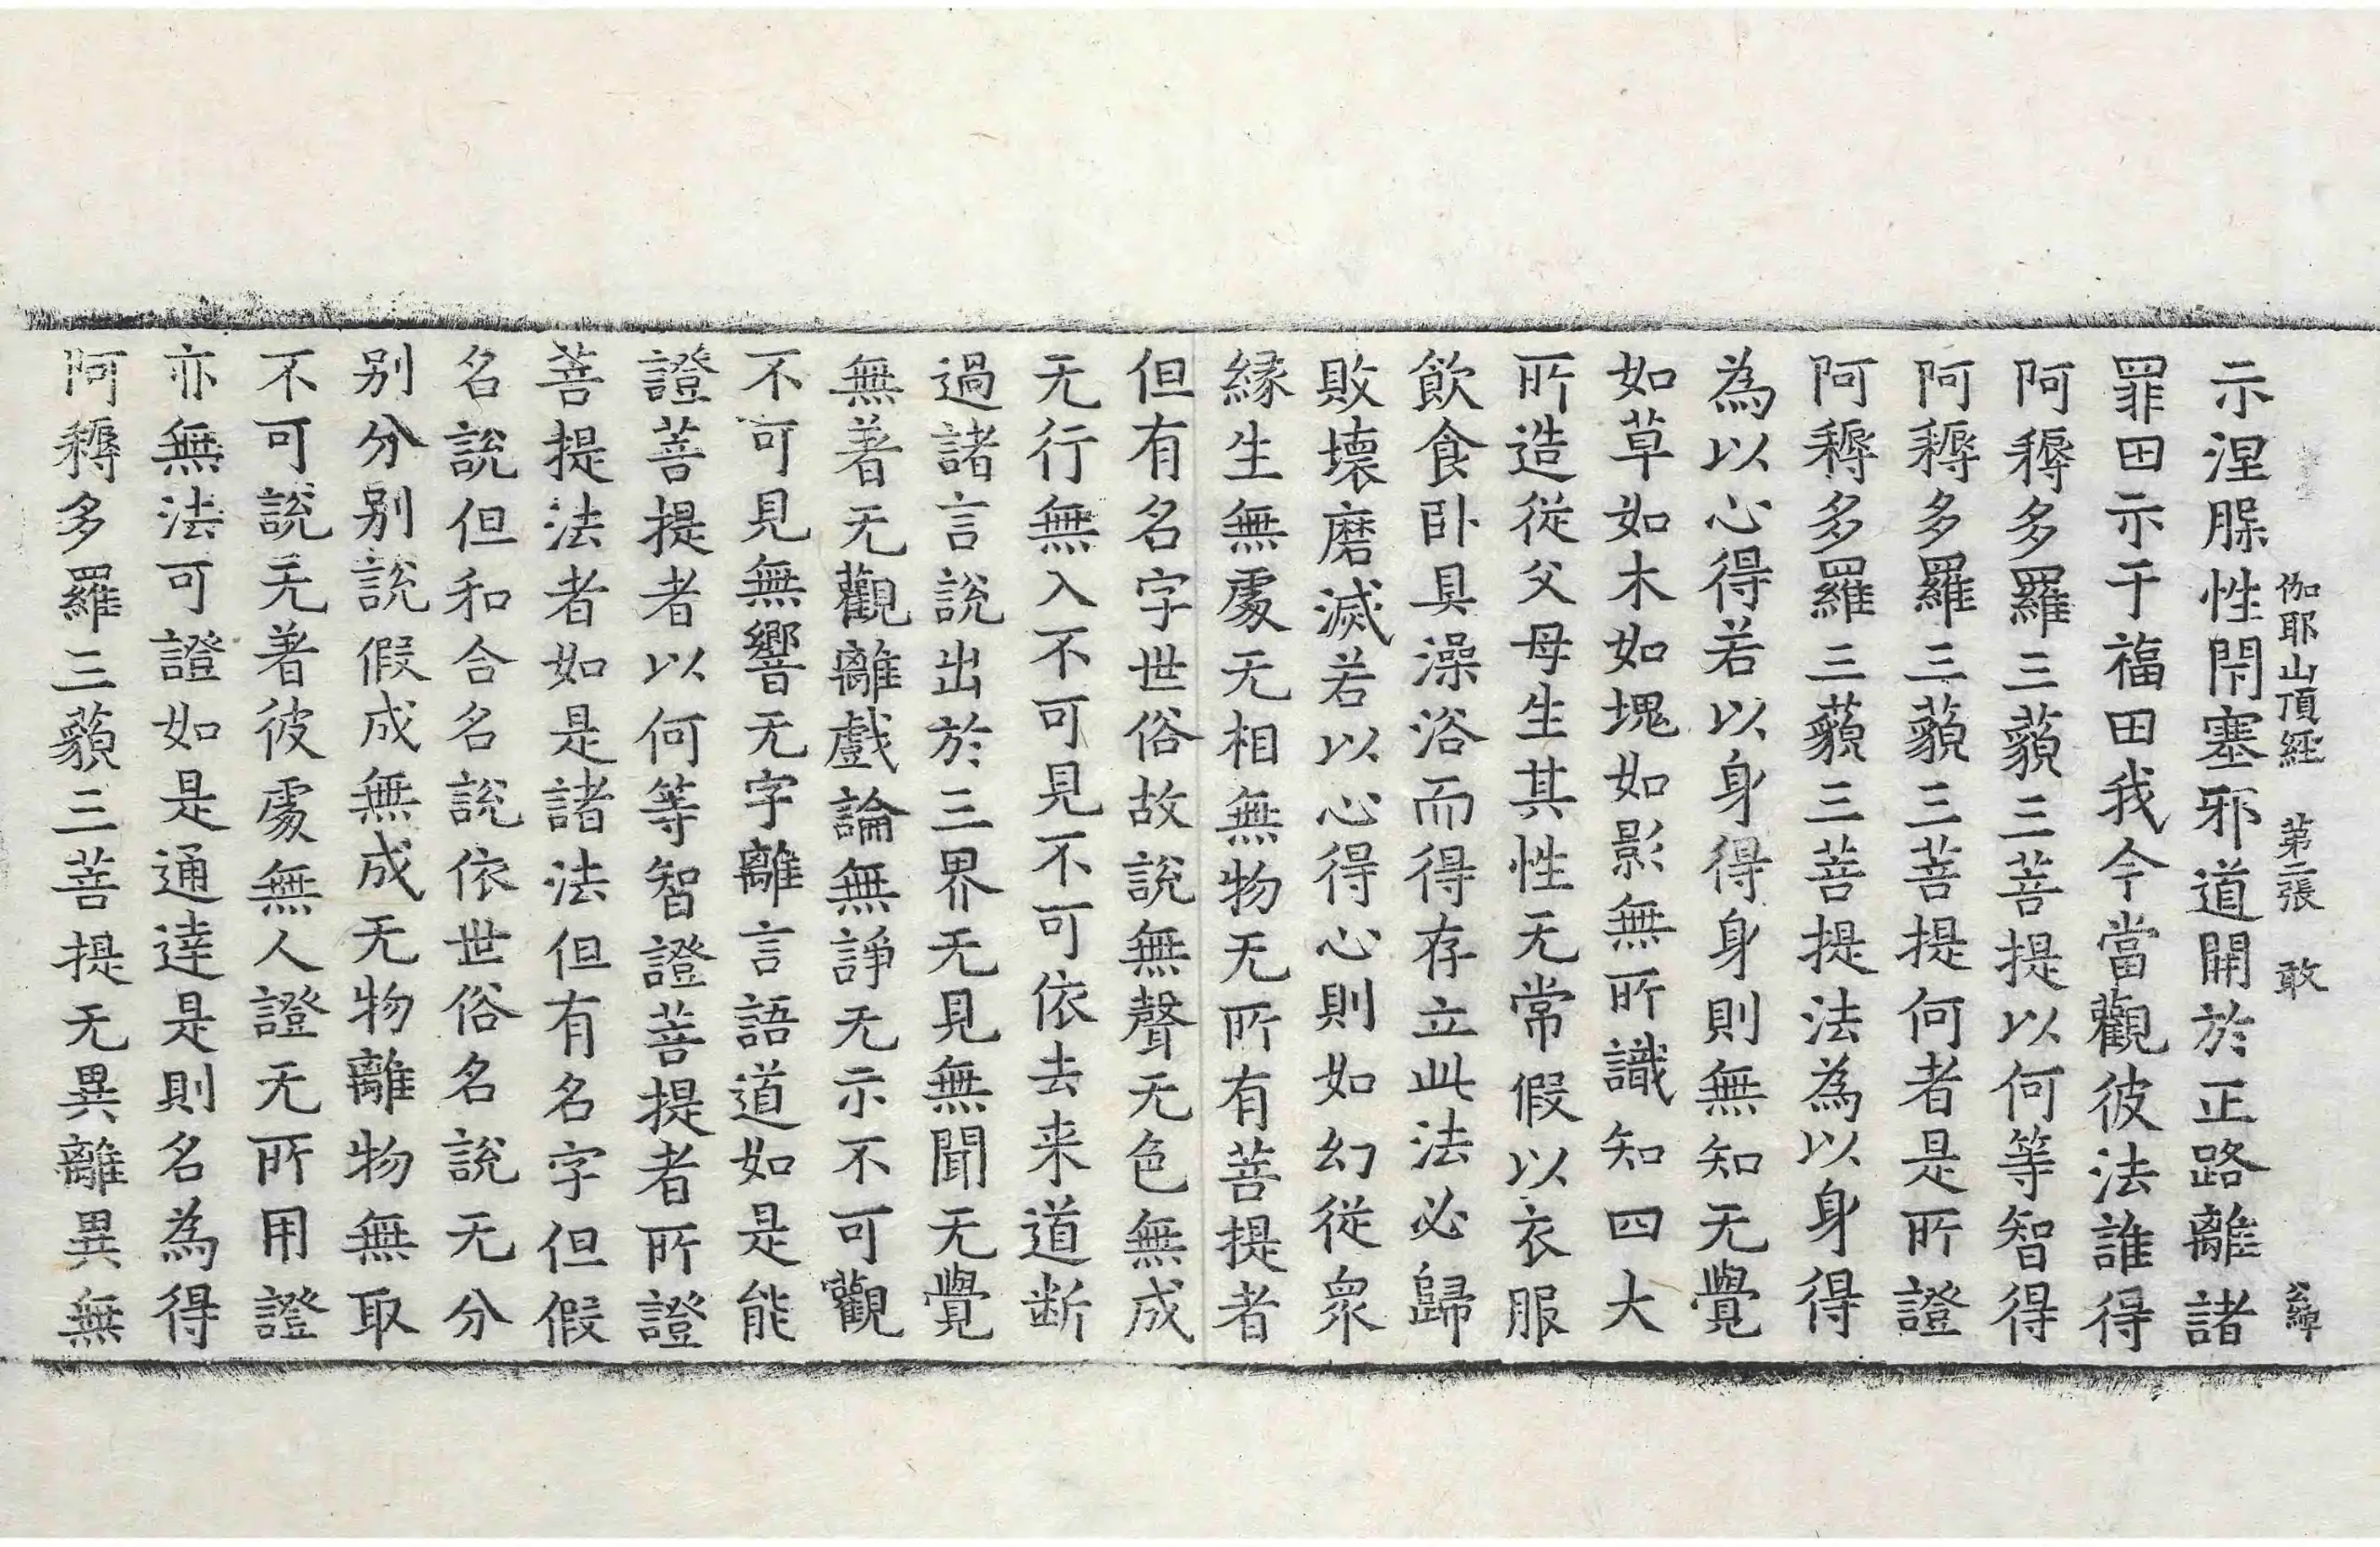 伽耶山頂經 第二張 敢
示涅𦞧性閇塞邪道開於正路離諸
罪田示于福田我今當觀彼法誰得
阿耨多羅三藐三菩提以何等智得
阿耨多羅三藐三菩提何者是所證
阿耨多羅三藐三菩提法為以身得
為以心得若以身得身則無知无覺
如草如木如塊如影無所識知四大
所造從父母生其性无常假以衣服
飲食卧具澡浴而得存立此法必歸
敗壞磨滅若以心得心則如幻從衆
縁生無處无相無物无所有菩提者
但有名字世俗故說無聲无色無成
无行無入不可見不可依去来道断
過諸言說出於三界无見無聞无覺
無著无觀離戲論無諍无示不可觀
不可見無響无字離言語道如是能
證菩提者以何等智證菩提者所證
菩提法者如是諸法但有名字但假
名說但和合名說依世俗名說无分
别分别說假成無成无物離物無取
不可說无著彼處無人證无所用證
亦無法可證如是通達是則名為得
阿耨多羅三藐三菩提无異離異無